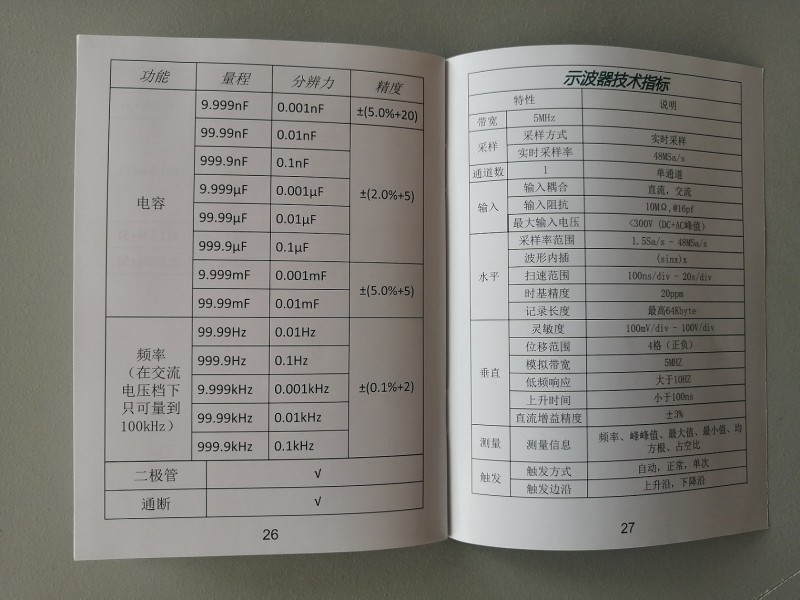 功能 量程 分辨力 精度
9.999nF 0.001nF ±(5.0%+20)
99.99nF 0.01nF
999.9nF 0.1nF
9.999μF 0.001μF ±(2.0%+5)
电容
99.99μF 0.01μF
999.9μF 0.1μF
9.999mF 0.001mF ±(5.0%+5)
99.99mF 0.01mF
99.99Hz 0.01Hz
频率
999.9Hz 0.1Hz
(在交流
电压档下
9.999kHz 0.001kHz ±(0.1%+2)
只可量到
99.99kHz 0.01kHz
100kHz)
999.9kHz 0.1kHz
二极管 √
通断 √
26
示波器技术指标
特性 说明
带宽 5MHz
采样 采样方式 实时采样
实时采样率 48MSa/s
通道数 1 单通道
输入 输入耦合 直流，交流
输入阻抗 10MΩ,@16pf
最大输入电压 <300V (DC+AC峰值)
水平 采样率范围 1.5Sa/s - 48MSa/s
波形内插 (sinx)x
扫速范围 100ns/div - 20s/div
时基精度 20ppm
记录长度 最高64Kbyte
垂直 灵敏度 100mV/div - 100V/div
位移范围 4格（正负）
模拟带宽 5MHZ
低频响应 大于10HZ
上升时间 小于100ns
直流增益精度 ±3%
测量 测量信息 频率、峰峰值、最大值、最小值、均
方根、占空比
触发 触发方式 自动，正常，单次
触发边沿 上升沿，下降沿
27